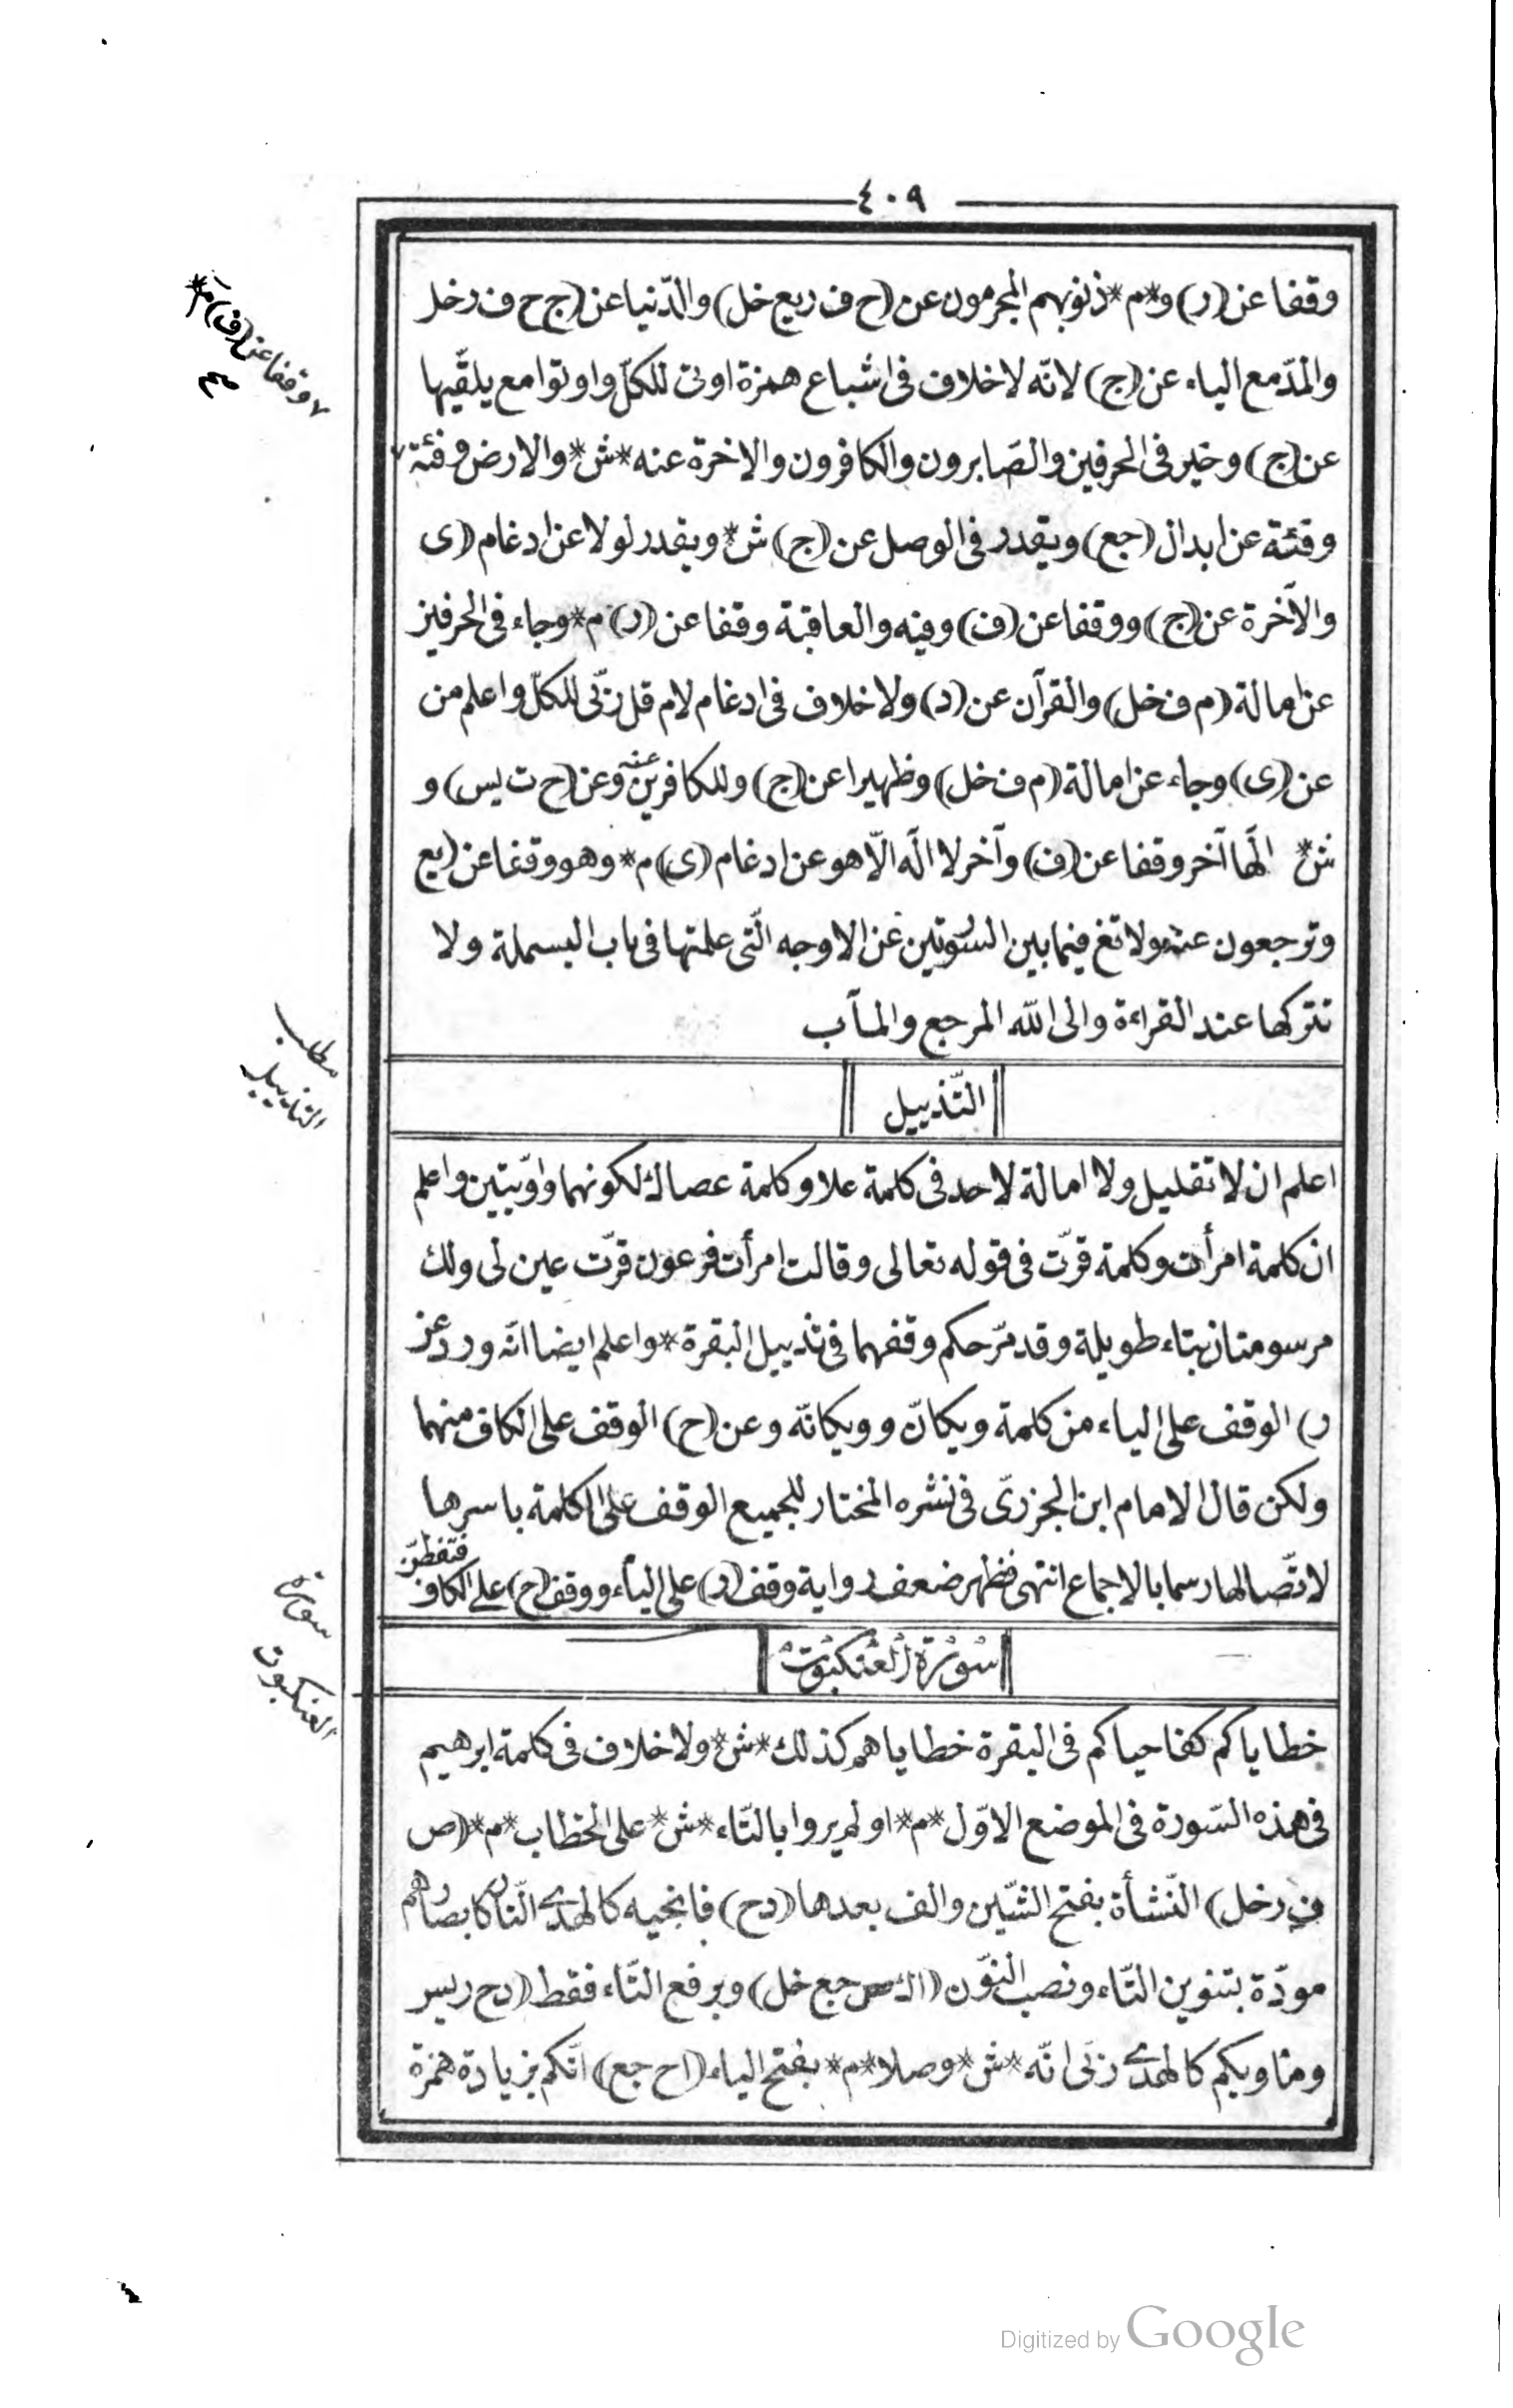 ٤٠٩
وقفا عن (ر) و*م* ذنوبهم المجرمون عن (ح ف ربع خل) والدّنيا عن (ج ح ف رخل
والمدّ مع الياء عن (ج) لانّه لا خلاف فى اشباع همزة اوتى للكلّ واوتوا مع يلقّيها
عن (ج) وخير فى الحرفين والصّابرون والكافرون والاخرة عنه *ش* والارض وفئة ٧
وفئة عن ابدال (جع) ويقدر فى الوصل عن (ج) ش* ويقدر لولا عن ادغام (ى
والآخرة عن (ج) ووقفا عن (ف) وفيه والعاقبة وقفا عن (ر) م* وجاء فى الحرفين
عن امالة (م ف خل) والقرآن عن (د) ولا خلاف فى ادغام لام قل ربّى للكلّ واعلم من
عن (ى) وجاء عن امالة (م ف خل) وظهيرا عن (ج) وللكافرين عنه وعن (ح ت يس) و
ش* الٓها آخر وقفا عن (ف) وآخر لا اله الّا هو عن ادغام (ى) م* وهو وقفا عن (يع
وترجعون عنه ولا تغ فيما بين السّورتين عن الاوجه الّتى علمتها فى باب البسملة ولا
تتركها عند القراءة والى اللّه المرجع والمآب
التّذييل
اعلم ان لا تقليل ولا امالة لاحد فى كلمة علا وكلمة عصاك لكونهما واوّيتين واعلم
ان كلمة امرأت وكلمة قرّت فى قوله تعالى وقالت امرأت فرعون قرّت عين لى ولك
مرسومتان بتاء طويلة وقد مرّ حكم وقفهما فى تذييل البقرة * واعلم ايضا انّه ورد عن
ر) الوقف على الياء من كلمة ويكانّ وويكانّه وعن (ح) الوقف على الكاف منهما
ولكن قال الامام ابن الجزرىّ فى نشره المختار للجميع الوقف على الكلمة باسرها
لاتّصالها رسما بالاجماع انتهى فظهر ضعف رواية وقف (ر) على الياء ووقف (ح) على الكاف فتفطّن
سُورَةُ الْعَنْكَبُوتِ
خطاياكم كفاحياكم فى البقرة خطاياهم كذلك *ش* ولا خلاف فى كلمة ابرهيم
فى هذه السّورة فى الموضع الاوّل *م* اولم يروا بالتّاء *ش* على الخطاب *م* (ص
ف رخل) النّشأة بفتح الشّين والف بعدها (دح) فانجيه كالهدى النّار كابصارهم
مودّة بتنوين التّاء ونصب النّون (اك ص جع خل) وبرفع التّاء فقط (دح ريس
ومأويكم كالهدى ربّى انّه *ش* وصلا *م* بفتح الياء (اح جع) ائنّكم بزيادة همزة
٧ وقفا عن (ف) م*
صح
مطلب
التذييل
سورة
العنكبوت
Digitized by Google